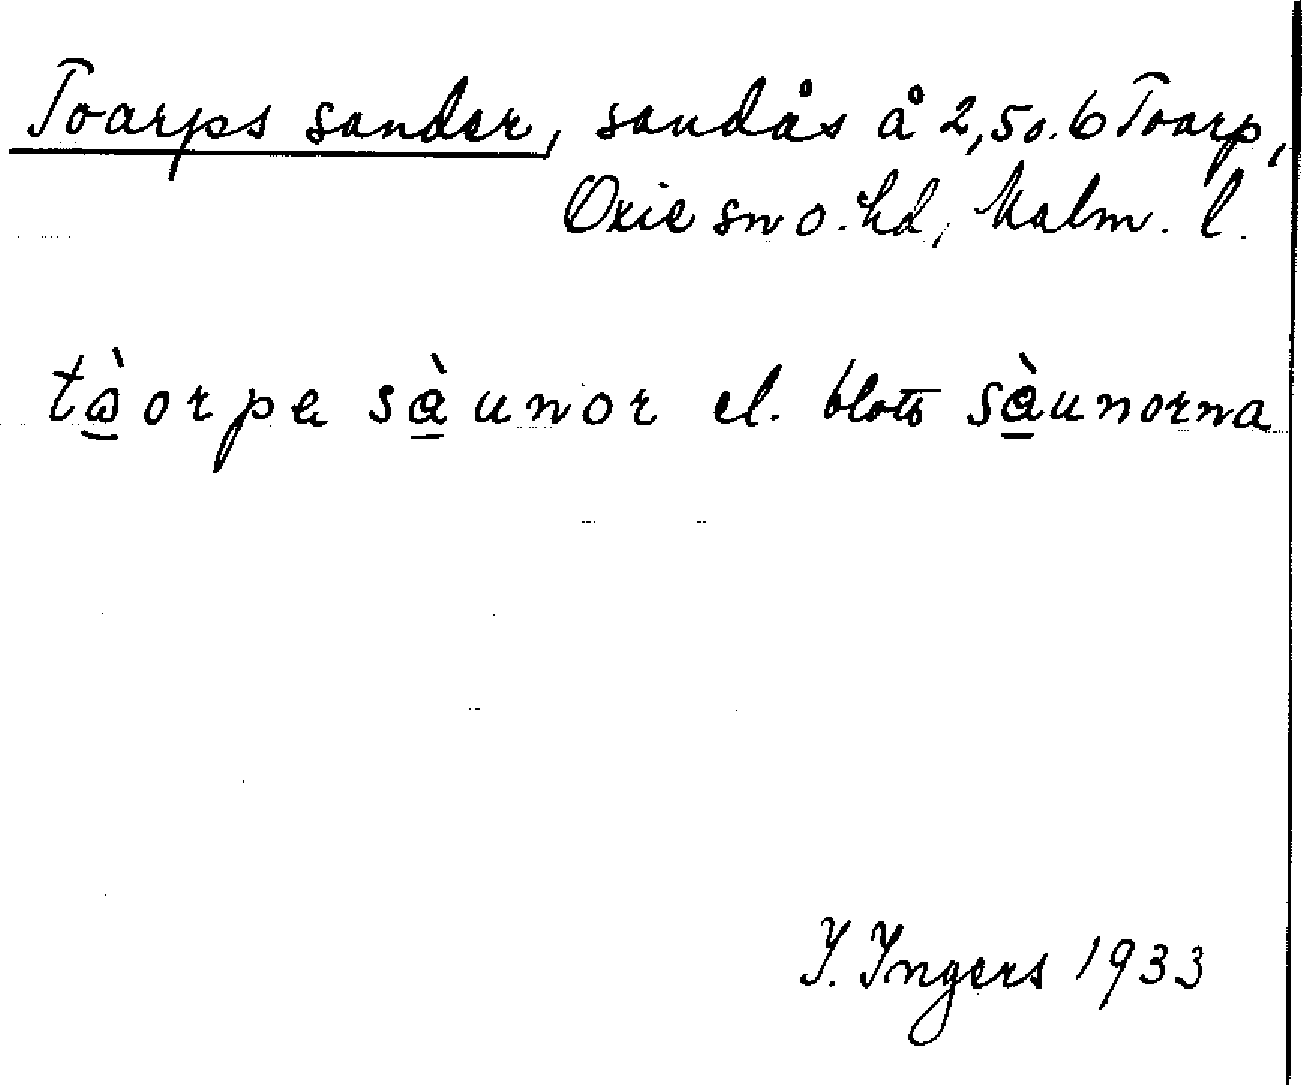 Toarps sander, sandås å 2,5 o. 6 Toarp,
Oxie sn o. hd, Malm. l.
tà̱orpa sà̱unor el. blott sà̱unorna
I. Ingers 1933